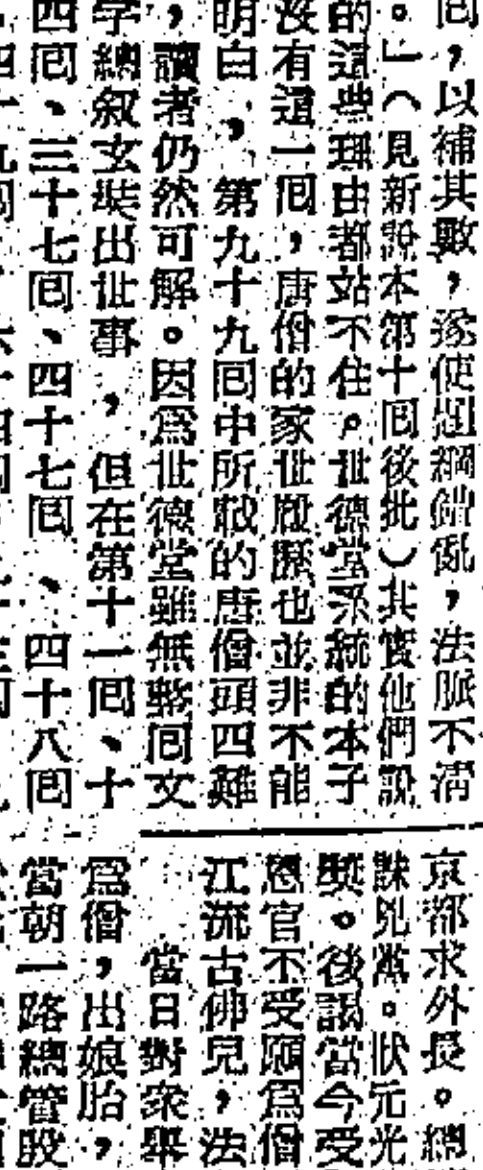 回，以補其數，遂使題綱錯亂，法脈不清
。」（見新說本第十回後批）其實他們說
的這些理由都站不住。世德堂系統的本子
沒有這一回，唐僧的家世履歷也並非不能
明白，第九十九回中所載的唐僧頭四難
，讀者仍然可解。因爲世德堂雖無整回文
字總叙玄奘出世事，但在第十一回、十
四回、三十七回、四十七回、四十八回
京都求外長。總
誅兇黨。狀元光
獎。後謁當今受
恩官不受願爲僧
江流古佛兒，法
當日對衆舉
爲僧，出娘胎，
當朝一路總管殷